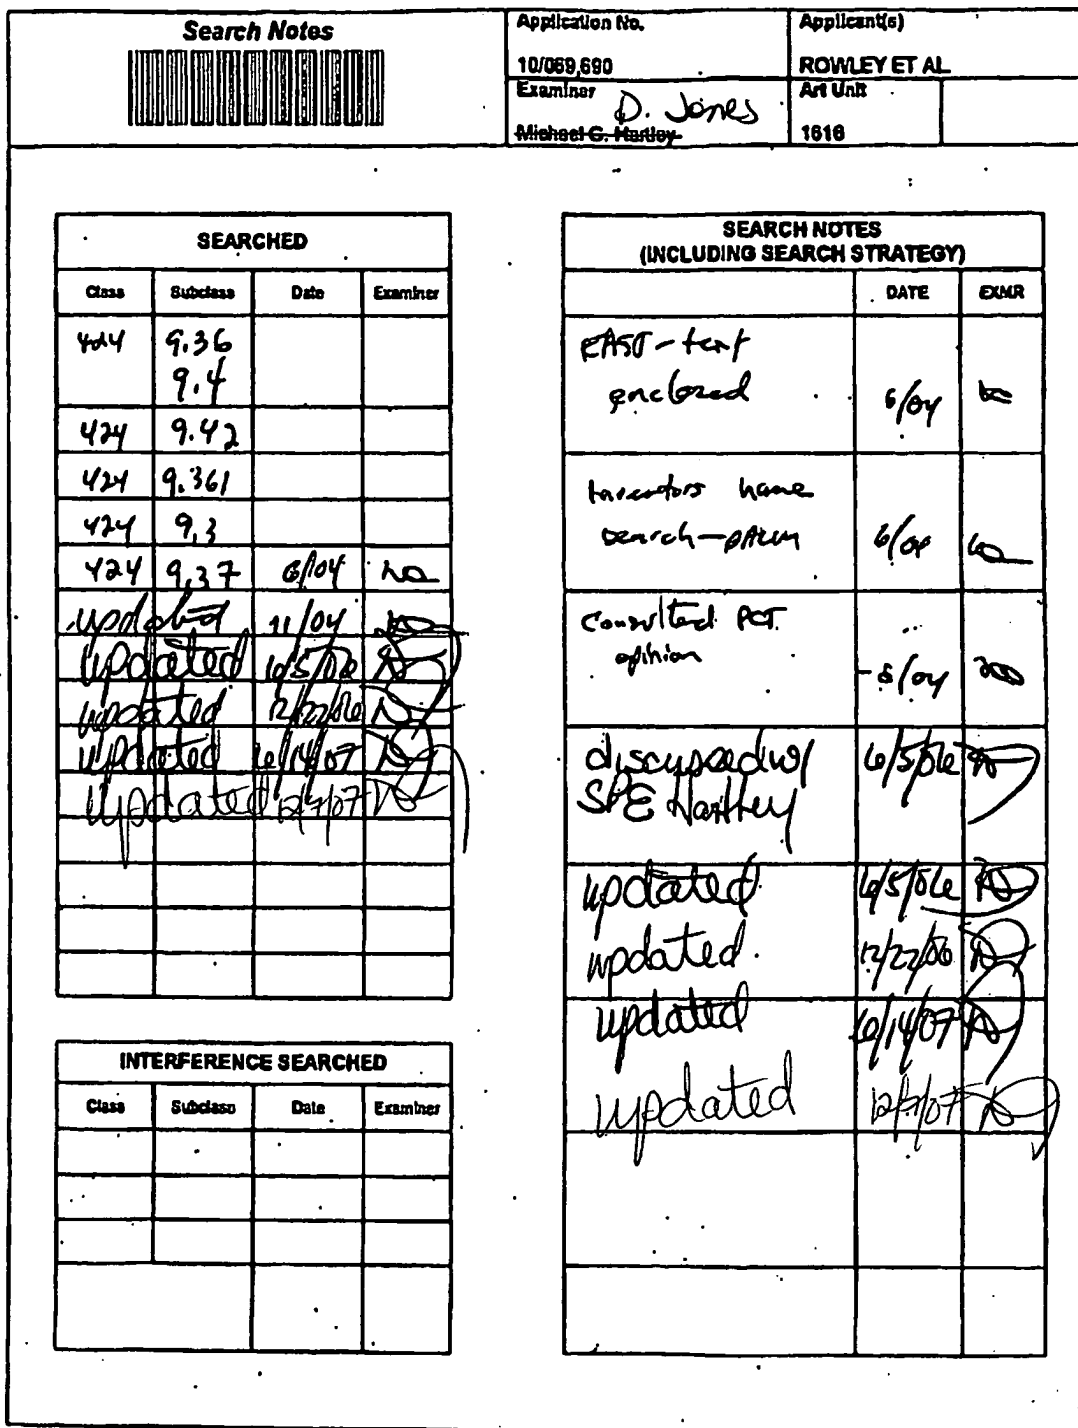 Search Notes
Application No.
Applicant(s)
10/069,690
ROWLEY ET AL
Examiner
D. Jones
Michael G. Hartley
Art Unit
1616
SEARCHED
Class Subclass Date Examiner
424 9.36
9.4
424 9.42
424 9.361
424 9.3
424 9.37 6/04
updated 11/04
updated 6/5/06
updated 12/22/06
updated 6/14/07
updated 12/7/07
INTERFERENCE SEARCHED
Class Subclass Date Examiner
SEARCH NOTES
(INCLUDING SEARCH STRATEGY)
DATE EXMR
EAST - text
enclosed 6/04
Inventors name
search - PALM 6/04
Consulted PCT
opinion 6/04
discussed w/ 6/5/06
SPE Hartley
updated 6/5/06
updated 12/22/06
updated 6/14/07
updated 12/7/07